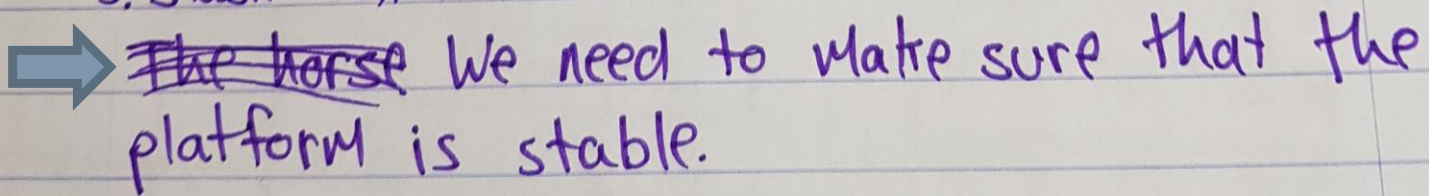 The horse We need to make sure that the
platform is stable.